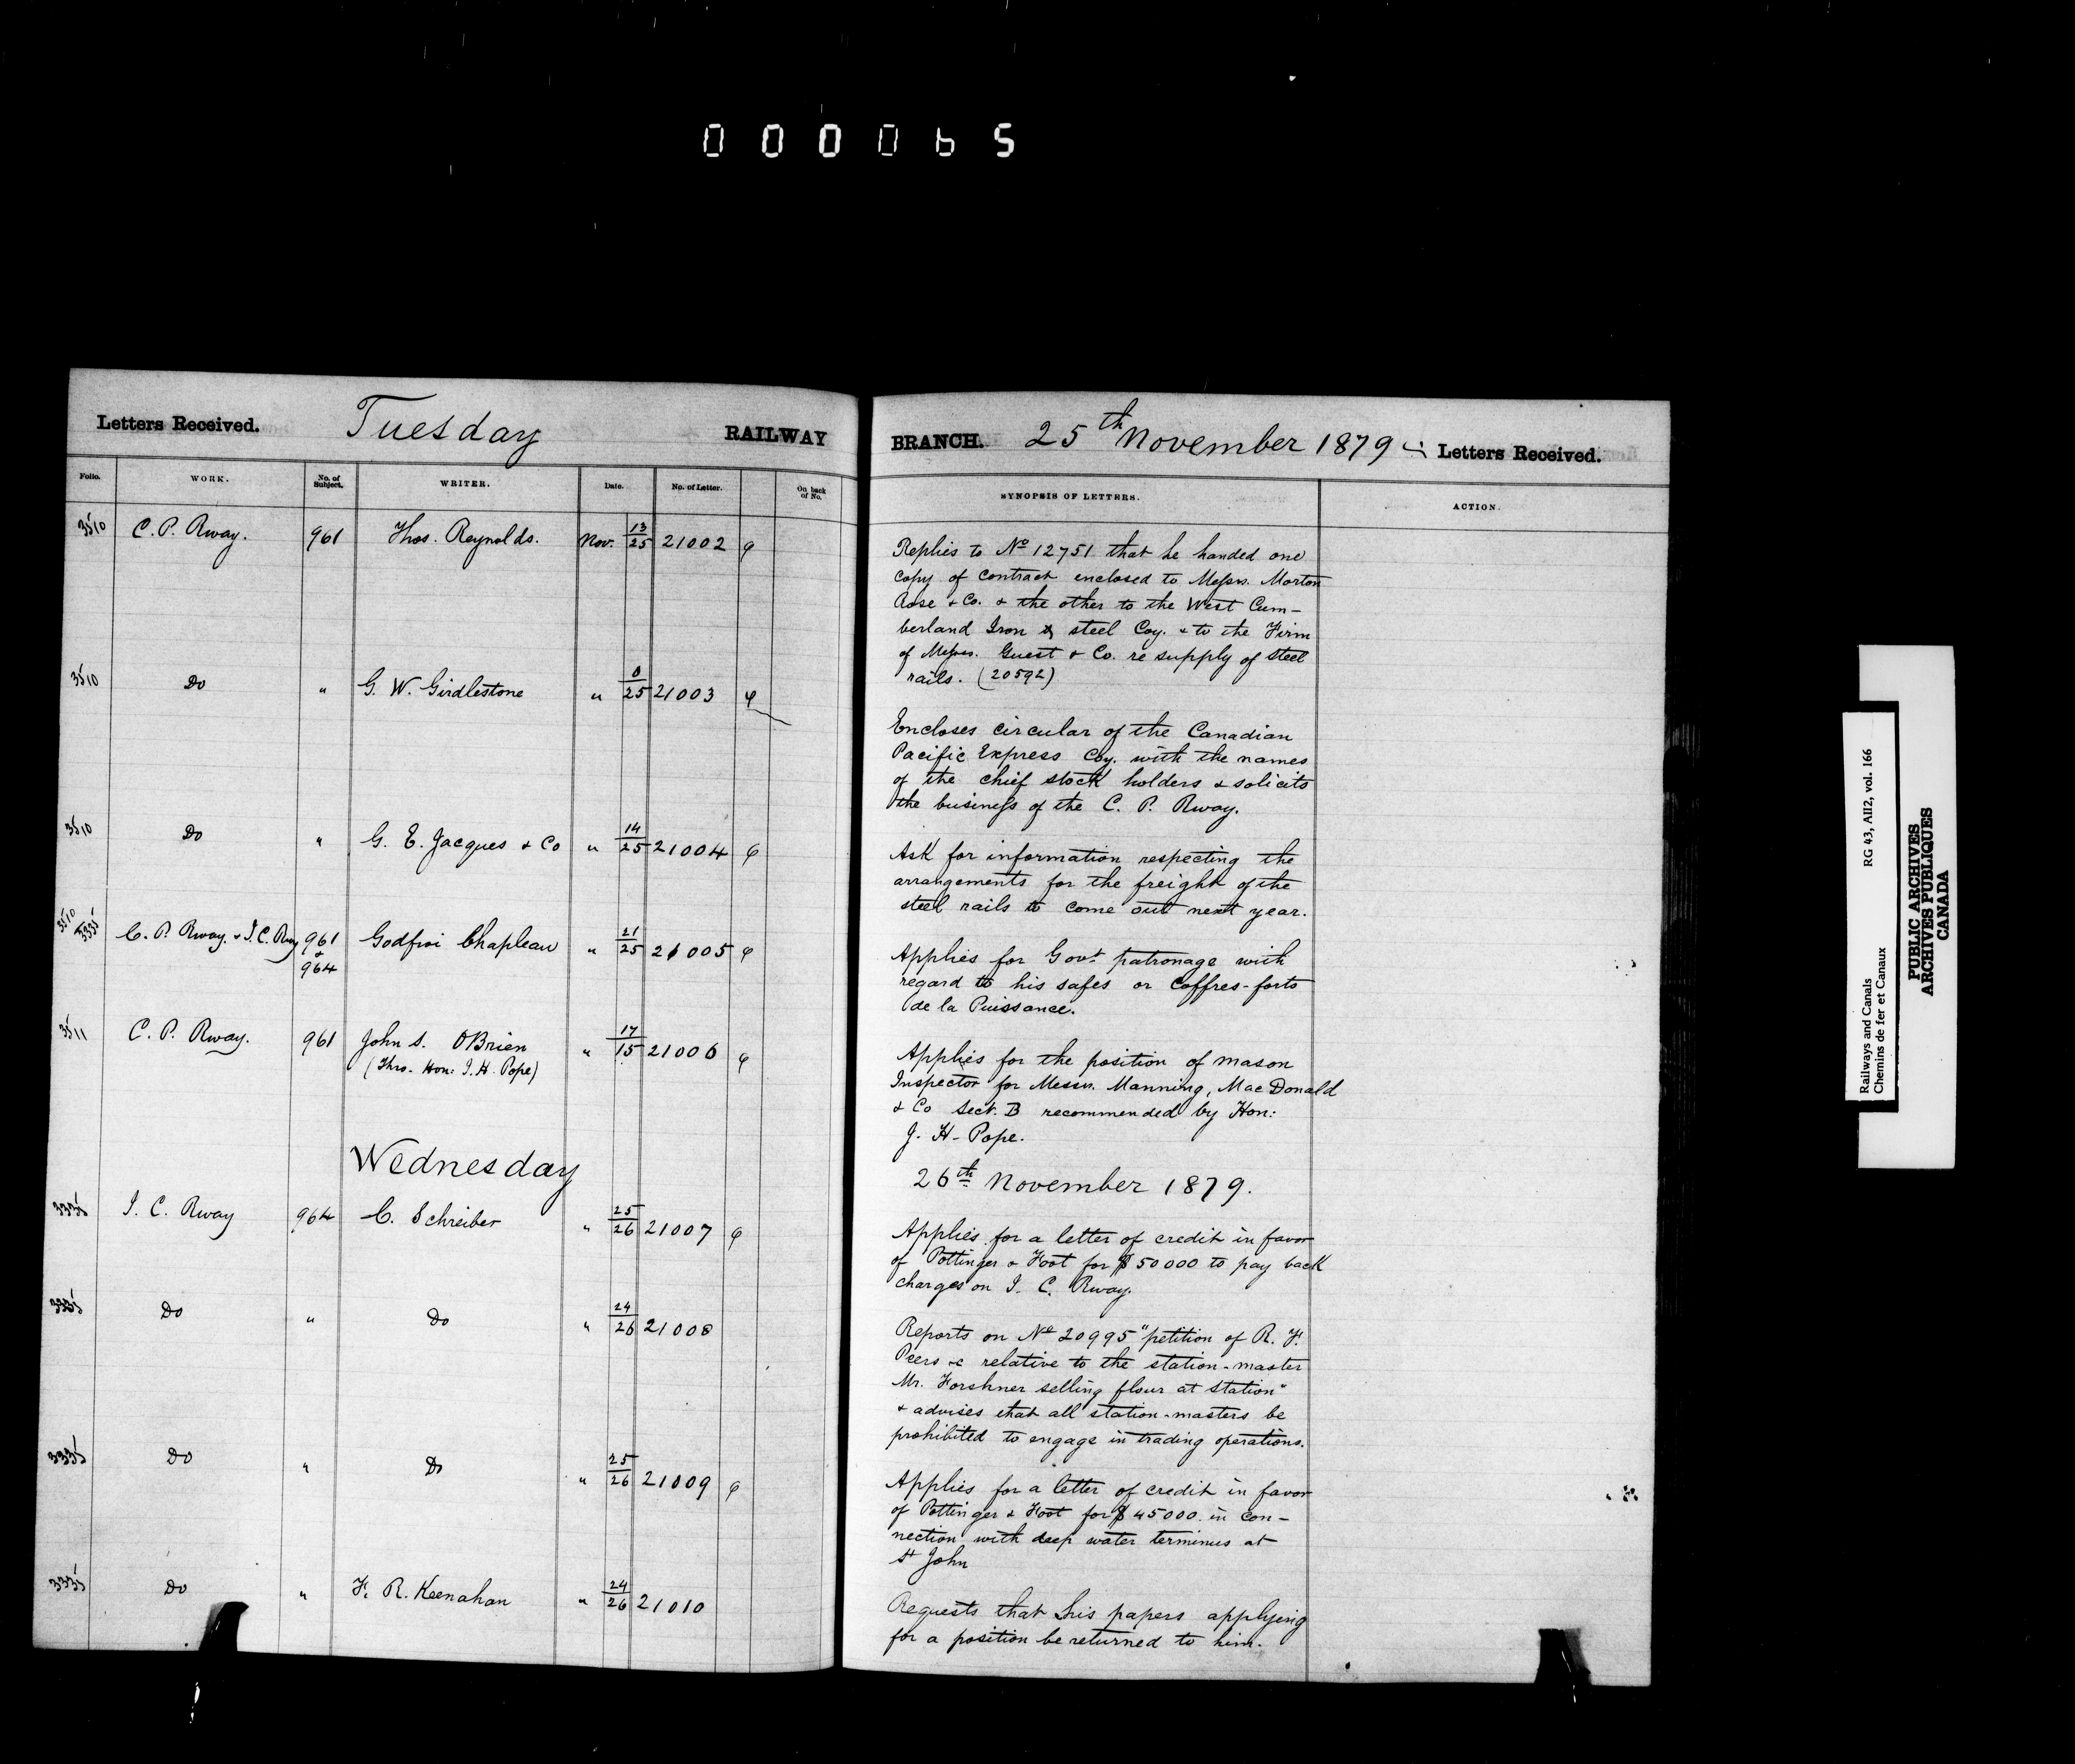 000065
Letters Received. Tuesday RAILWAY BRANCH. 25th November 1879 Letters Received.
Folio. WORK. No. of Subject. WRITER. Date. No. of Letter. On back of No. SYNOPSIS OF LETTERS. ACTION.
3510 C. P. Rway. 961 Thos. Reynolds. Nov. 13/25 21002
Replies to No 12751 that he handed one
copy of contract enclosed to Messrs. Morton
Rose & Co. & the other to the West Cum-
berland Iron & steel Coy. & to the Firm
of Messrs. Guest & Co. re supply of steel
rails. (20592)
3510 Do " G. W. Girdlestone " 8/25 21003
Encloses circular of the Canadian
Pacific Express Coy. with the names
of the chief stock holders & solicits
the business of the C. P. Rway.
3510 Do " G. E. Jacques & Co " 14/25 21004
Ask for information respecting the
arrangements for the freight of the
steel rails to come out next year.
3510 3335 C. P. Rway. & I. C. Rway 961 & 964 Godfroi Chapleau " 21/25 21005
Applies for Govt patronage with
regard to his safes or Coffres-forts
de la Puissance.
3511 C. P. Rway. 961 John S. OBrien " 17/15 21006
(Thro. Hon: J. H. Pope)
Applies for the position of mason
Inspector for Messrs. Manning, Mac Donald
& Co Sect. B recommended by Hon:
J. H. Pope.
Wednesday 26th November 1879.
3335 I. C. Rway 964 C. Schreiber " 25/26 21007
Applies for a letter of credit in favor
of Pottinger & Foot for $50000 to pay back
charges on I. C. Rway.
3335 Do " Do " 24/26 21008
Reports on No 20995 "petition of R. F.
Peers &c relative to the station-master
Mr. Forshner selling flour at station"
& advises that all station-masters be
prohibited to engage in trading operations.
3335 Do " Do " 25/26 21009
Applies for a letter of credit in favor
of Pottinger & Foot for $45000 in con-
nection with deep water terminus at
St John
3335 Do " F. R. Keenahan " 24/26 21010
Requests that his papers applying
for a position be returned to him.
Railways and Canals RG 43, AII2, vol. 166
Chemins de fer et Canaux
PUBLIC ARCHIVES
ARCHIVES PUBLIQUES
CANADA